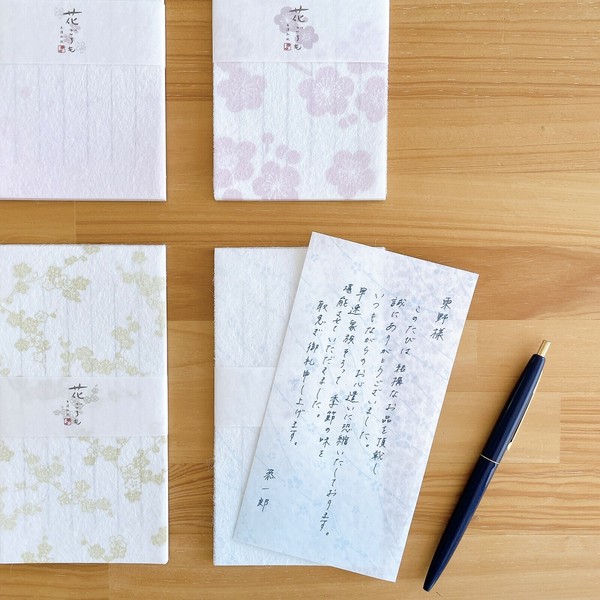 花
花
花
東野様
このたびは 結構なお品を頂戴し
誠にありがとうございました。
いつもながらのお心遣いに恐縮いたしております。
早速家族そろって 季節の味を
堪能させていただきました。
取急ぎ 御礼申し上げます。
恭一郎